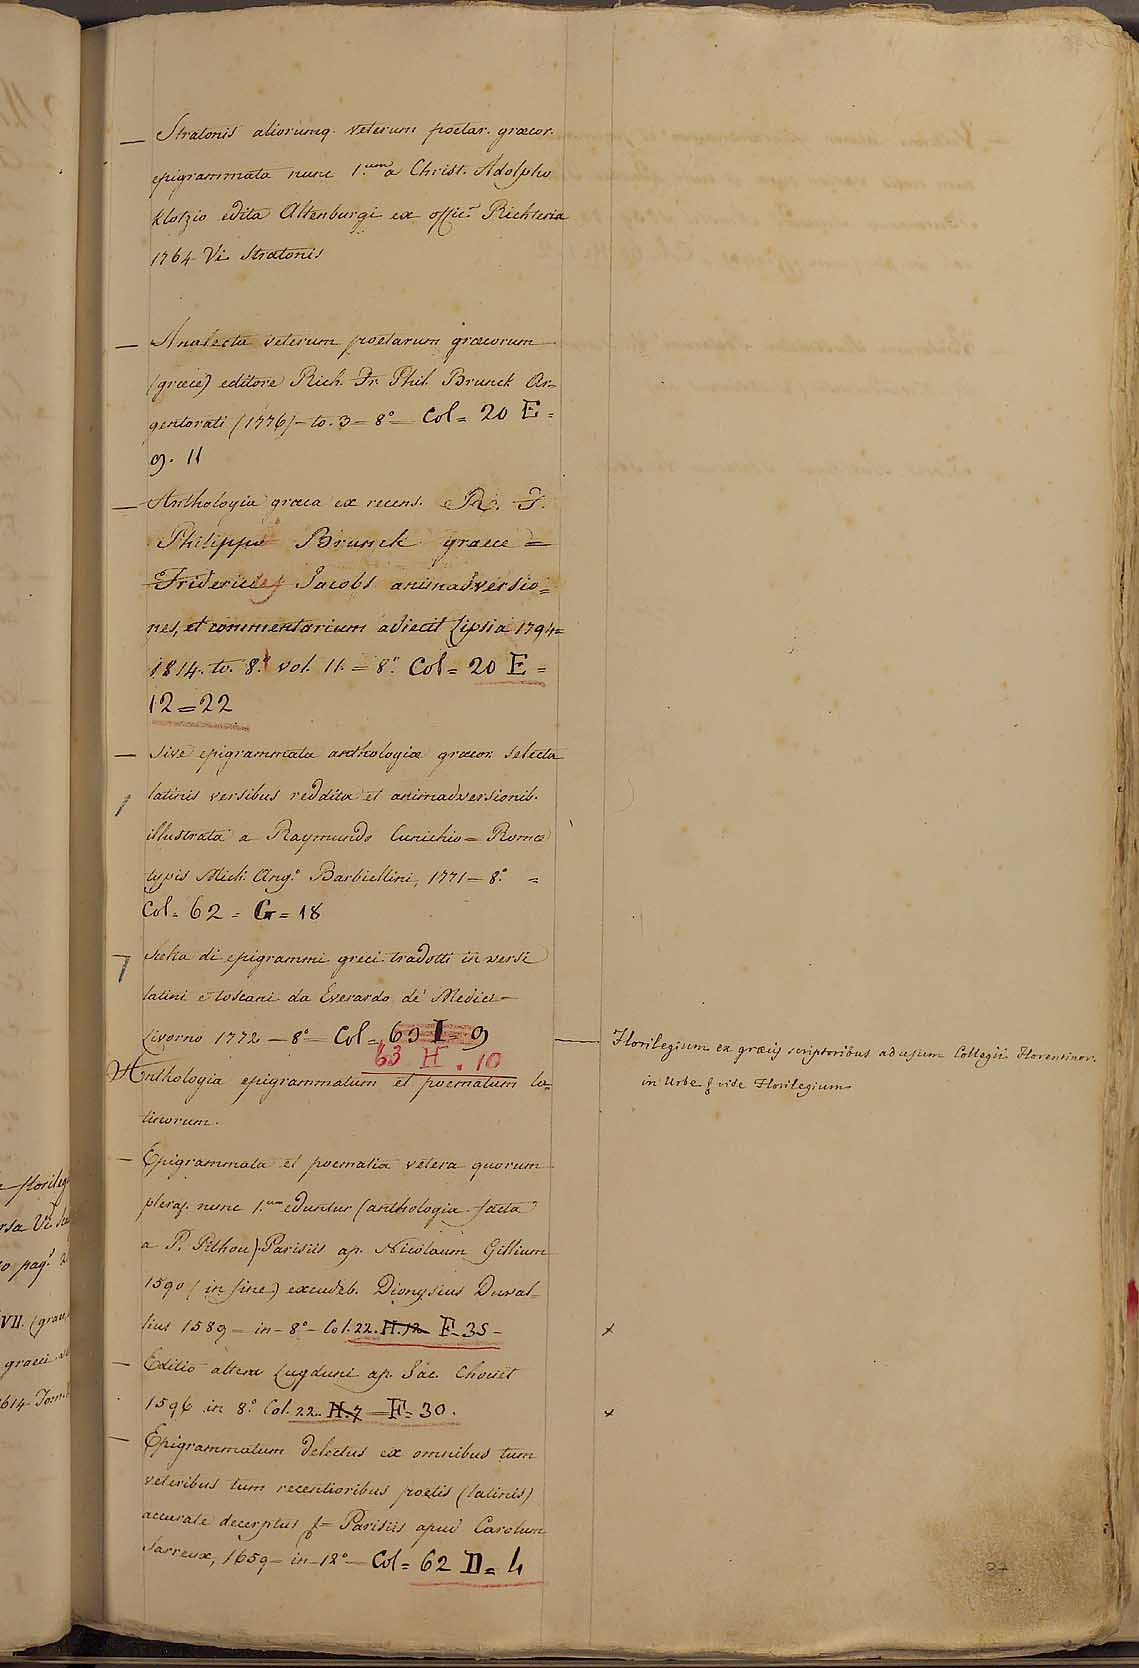 — Stratonis aliorumq. veterum poetar. græcor.
epigrammata nunc 1.um a Christ. Adolpho
Klotzio edita Altenburgi ex offic.a Richteria
1764 Vi Stratonis
— Analecta veterum poetarum græcorum
(græce) editore Rich. Fr. Phil. Brunck Ar-
gentorati (1776) – to. 3 = 8° — Col = 20 E =
9. 11
— Anthologia græca ex recens. R. F.
Philippi Brunck græce =
Fridericus Jacobs animadversio=
nes, et commentarium adiecit Lipsiæ 1794=
1814. to. 8. vol. 11. = 8°. Col = 20 E =
12 = 22
— Sive epigrammata anthologiæ græcor. selecta
latinis versibus reddita et animadversionib.
illustrata a Raymundo Cunichio = Romæ
typis Mich. Ang.° Barbiellini, 1771 = 8°. =
Col = 62 = G = 18
Scelta di epigrammi greci tradotti in versi
latini e toscani da Everardo de' Medici —
Livorno 1772 — 8° — Col = 63 I = 9
63 H . 10
Anthologia epigrammatum et poematum la=
tinorum.
— Epigrammata et poematia vetera quorum
pleraq. nunc 1.um eduntur (anthologia facta
a P. Pithou) Parisiis ap. Nicolaum Gillium
1590 (in fine) excudeb. Dionysius Duval-
lius 1589 — in – 8° — Col. 22. H. 12 F. 35 –
— Editio altera Lugduni ap. Jac. Chouët
1596 in 8° Col. 22. H. 7 — F = 30.
— Epigrammatum delectus ex omnibus tum
veteribus tum recentioribus poetis (latinis)
accurate decerptus &= Parisiis apud Carolum
Savreux, 1659 — in – 12° — Col = 62 D = 4
— Florilegium ex græcis scriptoribus ad usum Collegii Florentinor.
in Urbe & vide Florilegium
x
x